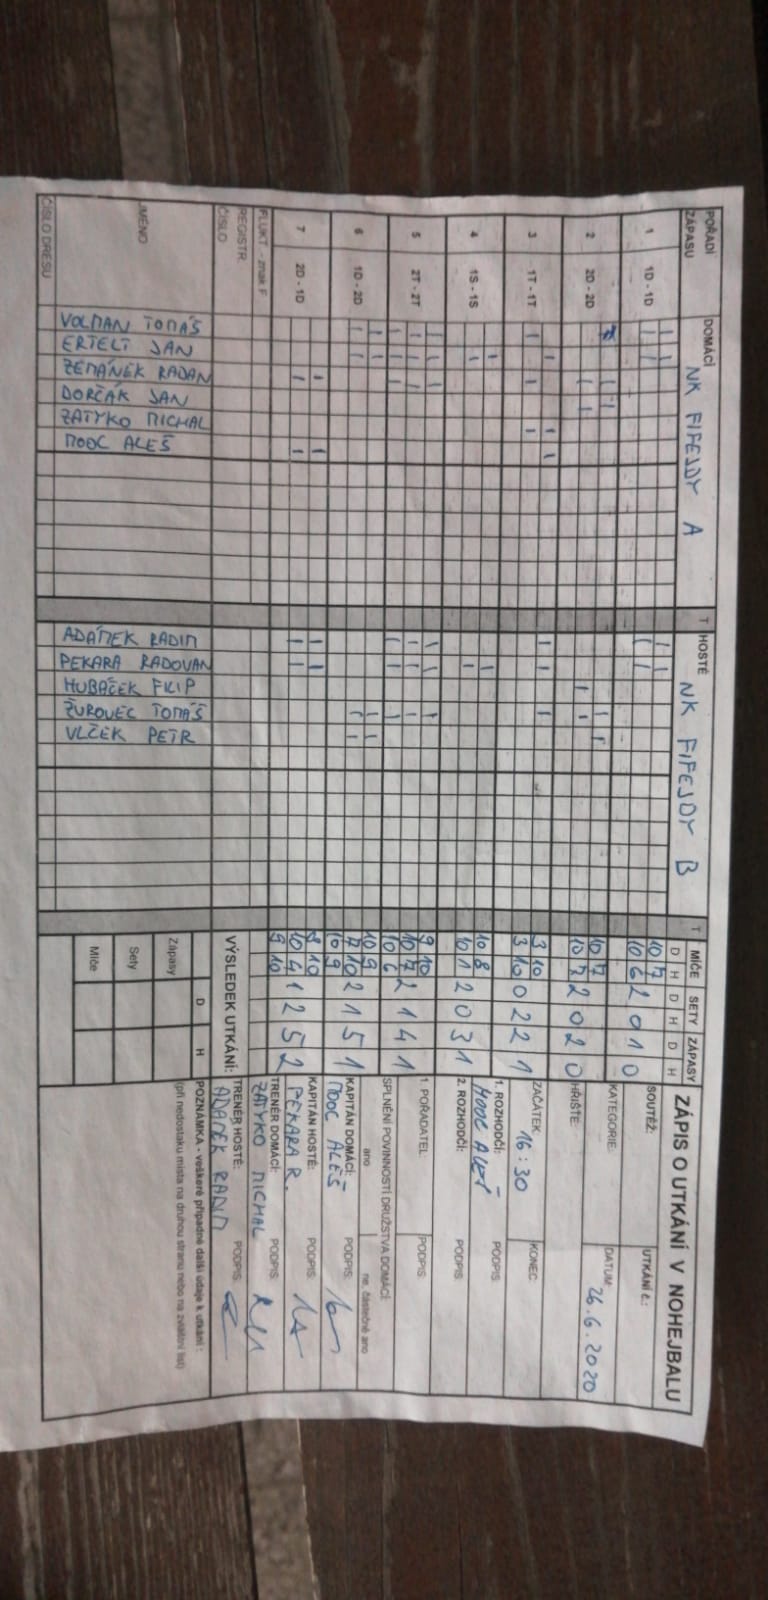 POŘADÍ ZÁPASU
DOMÁCÍ
NK FIFEJDY A
T
HOSTÉ
NK FIFEJDY B
T
MÍČE SETY ZÁPASY
D H D H D H
1 1D - 1D
10 7
10 6 2 0 1 0
2 2D - 2D
10 7
10 7 2 0 2 0
3 1T - 1T
3 10
3 10 0 2 2 1
4 1S - 1S
10 8
10 1 2 0 3 1
5 2T - 2T
9 10
10 7 2 1 4 1
10 6
6 1D - 2D
10 9
7 10 2 1 5 1
10 9
7 2D - 1D
8 10
10 4 1 2 5 2
9 10
FLUKT. - znak F
REGISTR.
ČÍSLO
JMÉNO
ČÍSLO DRESU
VOLMAN TOMÁŠ
ERTELT JAN
ZEMÁNEK RADAN
DORČÁK JAN
ZATYKO MICHAL
MOOC ALEŠ
ADÁMEK RADIM
PEKARA RADOVAN
HUBÁČEK FILIP
ŽUROVEC TOMÁŠ
VLČEK PETR
VÝSLEDEK UTKÁNÍ:
D H
Zápasy
Sety
Míče
ZÁPIS O UTKÁNÍ V NOHEJBALU
SOUTĚŽ: UTKÁNÍ č.:
KATEGORIE: DATUM: 26.6.2020
HŘIŠTĚ:
ZAČÁTEK: 16:30 KONEC:
1. ROZHODČÍ: MOOC ALEŠ PODPIS:
2. ROZHODČÍ: PODPIS:
1. POŘADATEL: PODPIS:
SPLNĚNÍ POVINNOSTÍ DRUŽSTVA DOMÁCÍ:
ano ne, částečně ano
KAPITÁN DOMÁCÍ: MOOC ALEŠ PODPIS:
KAPITÁN HOSTÉ: PEKARA R. PODPIS:
TRENÉR DOMÁCÍ: ZATYKO MICHAL PODPIS:
TRENÉR HOSTÉ: ADÁMEK RADIM PODPIS:
POZNÁMKA - veškeré případné další údaje k utkání :
(při nedostaku místa na druhou stranu nebo na zvláštní list)